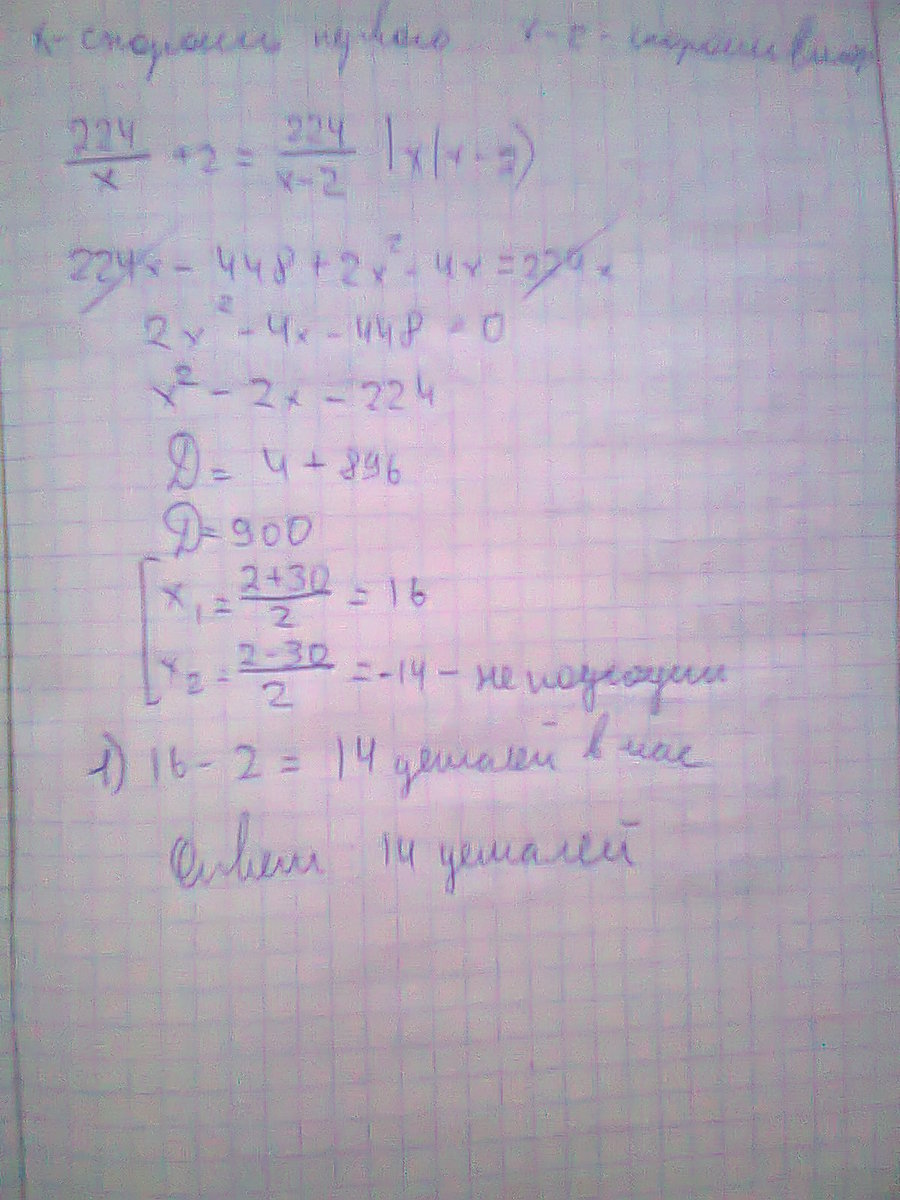 x - скорость первого x-2 - скорость втор
224/x + 2 = 224/(x-2) | x(x-2)
224x - 448 + 2x² - 4x = 224x
2x² - 4x - 448 = 0
x² - 2x - 224
D = 4 + 896
D = 900
x₁ = (2+30)/2 = 16
x₂ = (2-30)/2 = -14 - не подходит
1) 16 - 2 = 14 деталей в час
Ответ 14 деталей